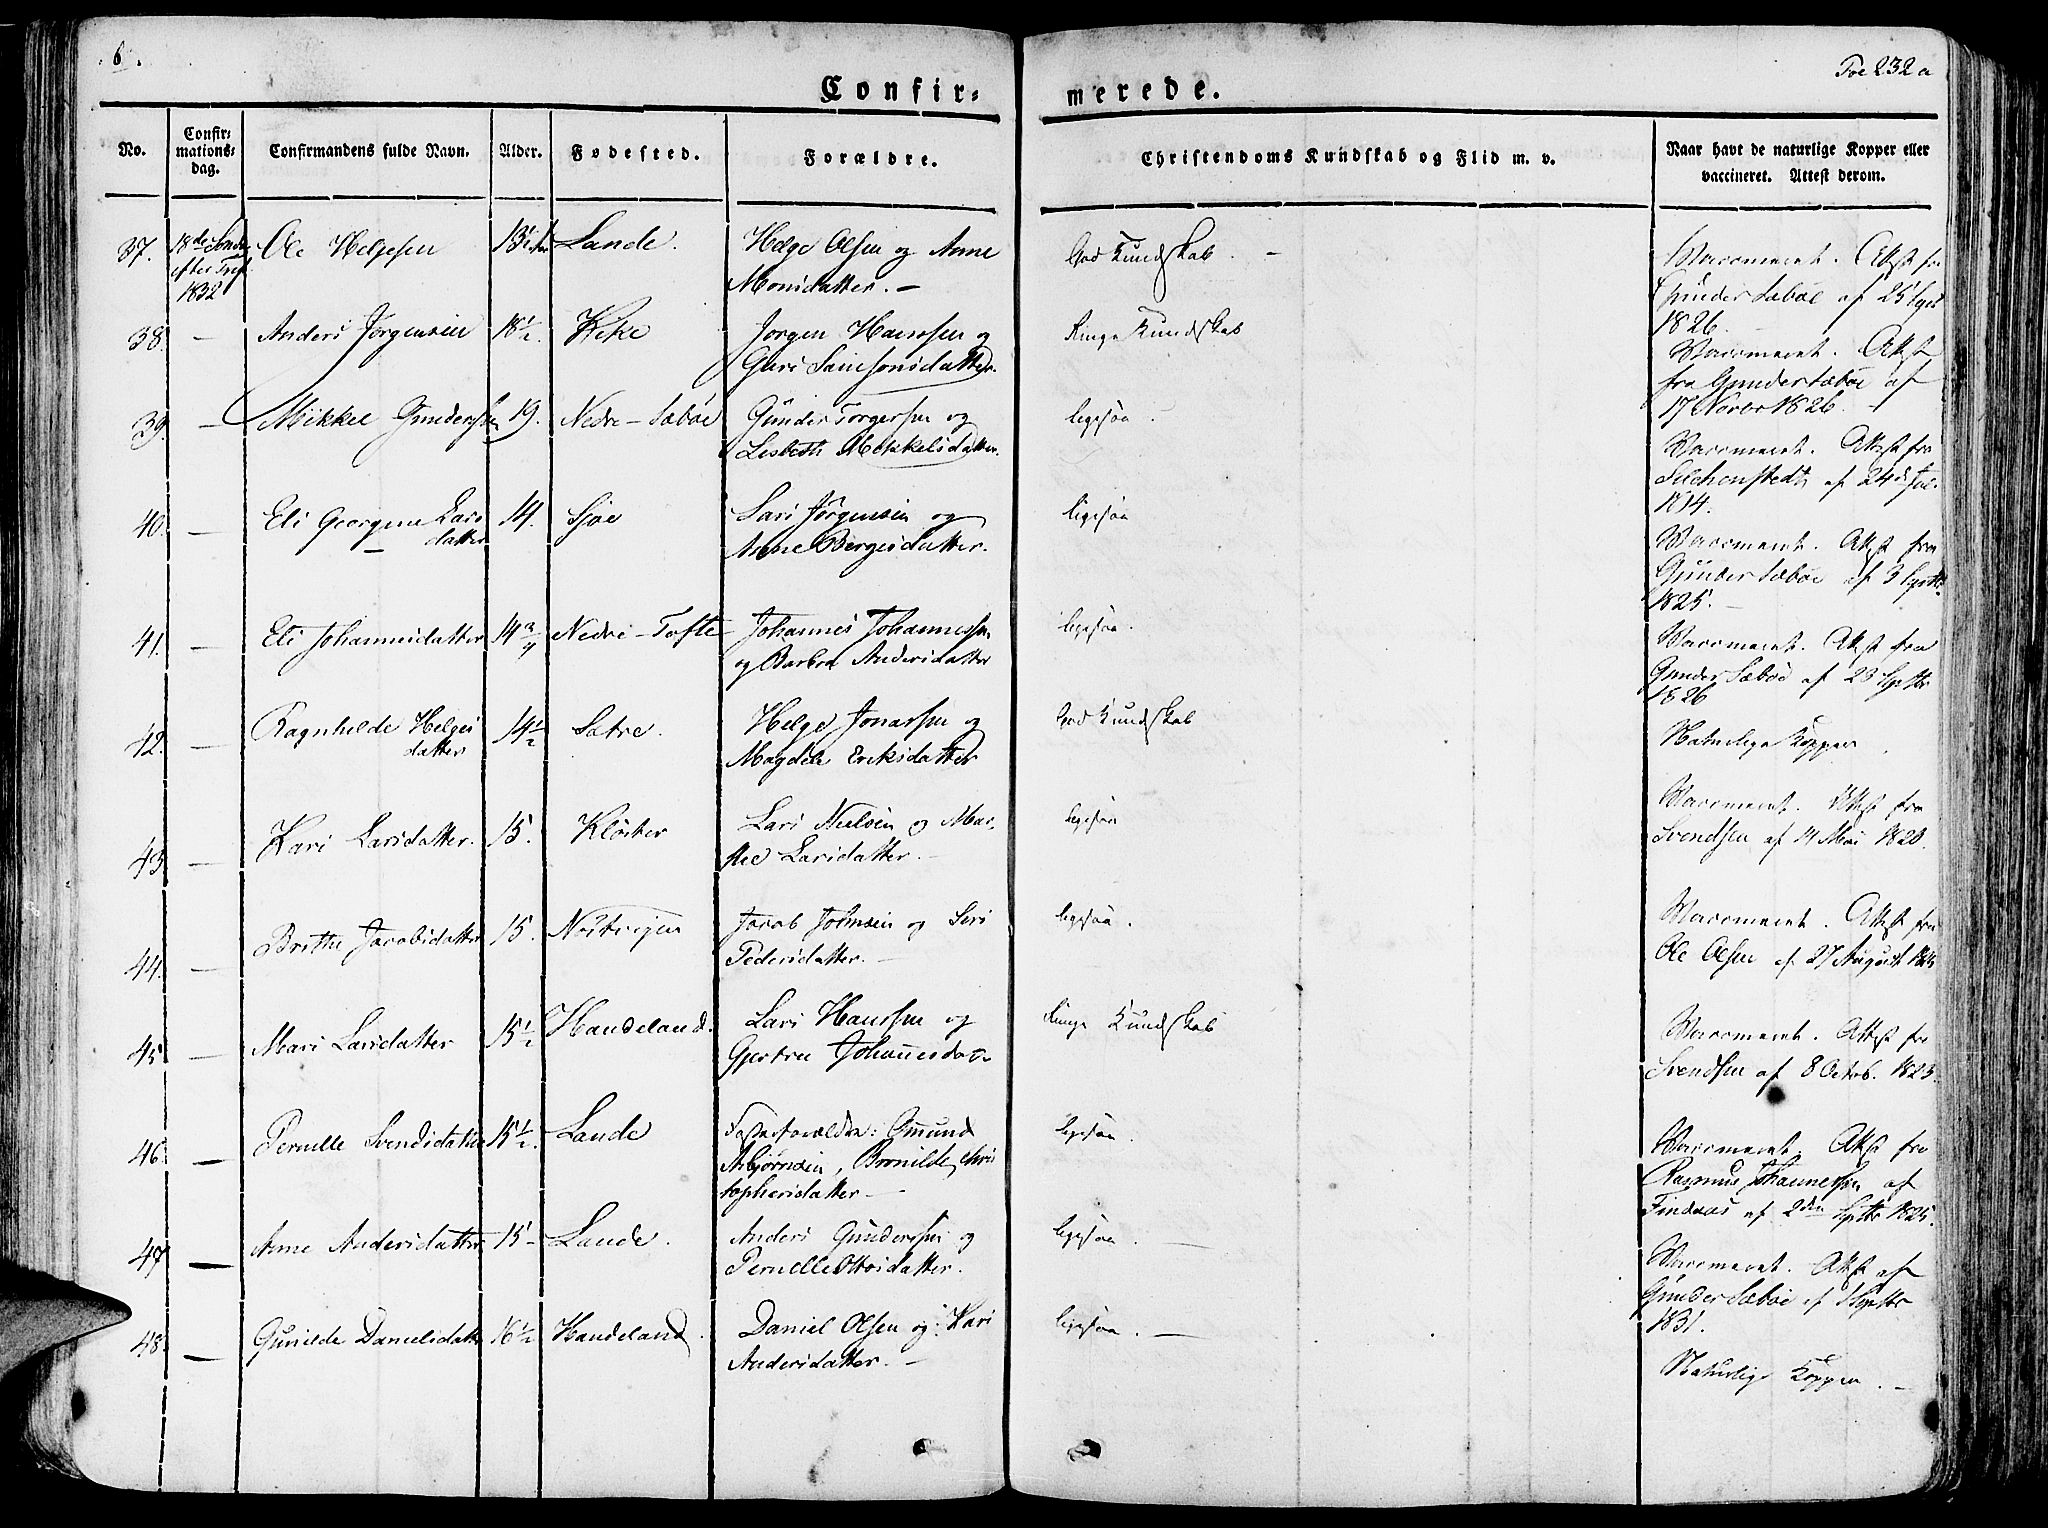 6.
Foe 232 a
Confir-
merede.
No.
Confir-
mations-
dag.
Confirmandens fulde Navn.
Alder.
Fødested.
Forældre.
Christendoms Kundskab og Flid m. v.
Naar havt de naturlige Kopper eller
vaccineret. Attest derom.
37. 18de Sønd. Ole Helgesen Lande. Helge Olsen og Anne God Kundskab. Vaccineret. Attest fra
efter Tref. Monsdatter. Gunder Sæbøe af 25
1832 1826.
38. Anders Jørgensen 18½. Jørgen Hanssen og Ringe Kundskab Vaccineret. Attest
Guri Samsonsdatter. fra Gunder Sæbøe af
17 Novbr 1826.
39. Mikkel Gundersen 19. Nedre-Sæbøe Gunder Torgersen og ligesaa. Vaccineret. Attest fra
Lisbeth Mikkelsdatter. af 24
1814.
40. Eli Georgine Lars 14. Lars Jørgensen og ligesaa Vaccineret. Attest fra
datter Anne Børgesdatter. Gunder Sæbøe af 3 Septbr
1825.
41. Eli Johannesdatter 14 Nedre-Tofte Johannes Johannessen ligesaa. Vaccineret. Attest fra
og Barbra Andersdatter Gunder Sæbøe af 23 Septbr
1826
42. Ragnhilde Helges 14½ Sætre. Helge Jonassen og God Kundskab Naturlige Kopper.
datter Magdele Eriksdatter
43. Kari Larsdatter. 15. Kloster Lars Nielsen og Mar- ligesaa Vaccineret. Attest fra
the Larsdatter. Svendsen af 14 Mai 1820.
44. Brithe Jacobsdatter 15. Jacob Johnsen og Siri ligesaa. Vaccineret. Attest fra
Pedersdatter. Ole Olsen af 27 August
45. Mari Larsdatter 15½ Handeland. Lars Hanssen og Ringe Kundskab Vaccineret. Attest fra
Gjertru Svendsen af 8 Octob. 1823.
46. Pernille Svendsdatter 15½. Lande Fosterforældre: Gmund ligesaa. Vaccineret. Attest fra
Asbjørnsen, Bronilde Chris Rasmus Johannessen af
tophersdatter Findaas af 2den Septbr 1825.
47 Anne Andersdatter 15 Lande. Anders Gunderssen og ligesaa. Vaccineret. Attest af
Pernelle Olsdatter. Gunder Sæbøe af Septbr
1831.
48. Gunilde Danielsdatter 16½ Handeland. Daniel Olsen og Kari ligesaa. Naturlige Kopper.
Andersdatter.